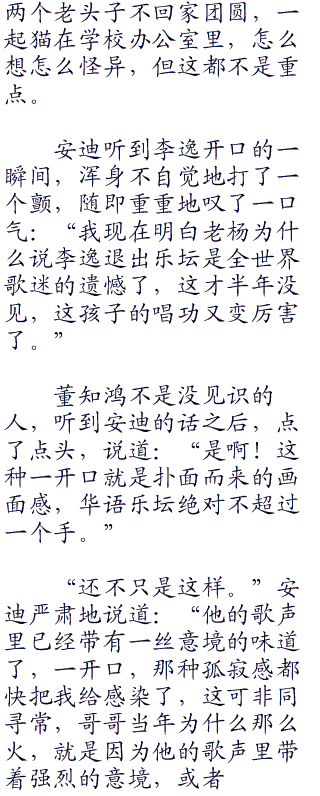 两个老头子不回家团圆，一
起猫在学校办公室里，怎么
想怎么怪异，但这都不是重
点。
安迪听到李逸开口的一
瞬间，浑身不自觉地打了一
个颤，随即重重地叹了一口
气：“我现在明白老杨为什
么说李逸退出乐坛是全世界
歌迷的遗憾了，这才半年没
见，这孩子的唱功又变厉害
了。”
董知鸿不是没见识的
人，听到安迪的话之后，点
了点头，说道：“是啊！这
种一开口就是扑面而来的画
面感，华语乐坛绝对不超过
一个手。”
“还不只是这样。”安
迪严肃地说道：“他的歌声
里已经带有一丝意境的味道
了，一开口，那种孤寂感都
快把我给感染了，这可非同
寻常，哥哥当年为什么那么
火，就是因为他的歌声里带
着强烈的意境，或者